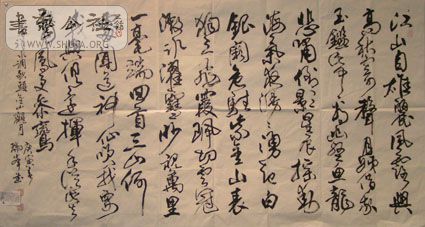 江山自雄丽风露与
高寒寄声月姊借我
玉鉴此中看幽壑鱼龙
悲啸倒影星辰摇动
海气夜漫漫涌起白
银阙危驻紫金山表
独立飞霞珮切云冠
漱冰濯雪眇视万里
一毫端回首三山何
处闻道群仙笑我要
我欲俱还挥手从此去
翳凤更骖鸾
水调歌头金山观月
庚寅春
WWW.SHUFA.ORG